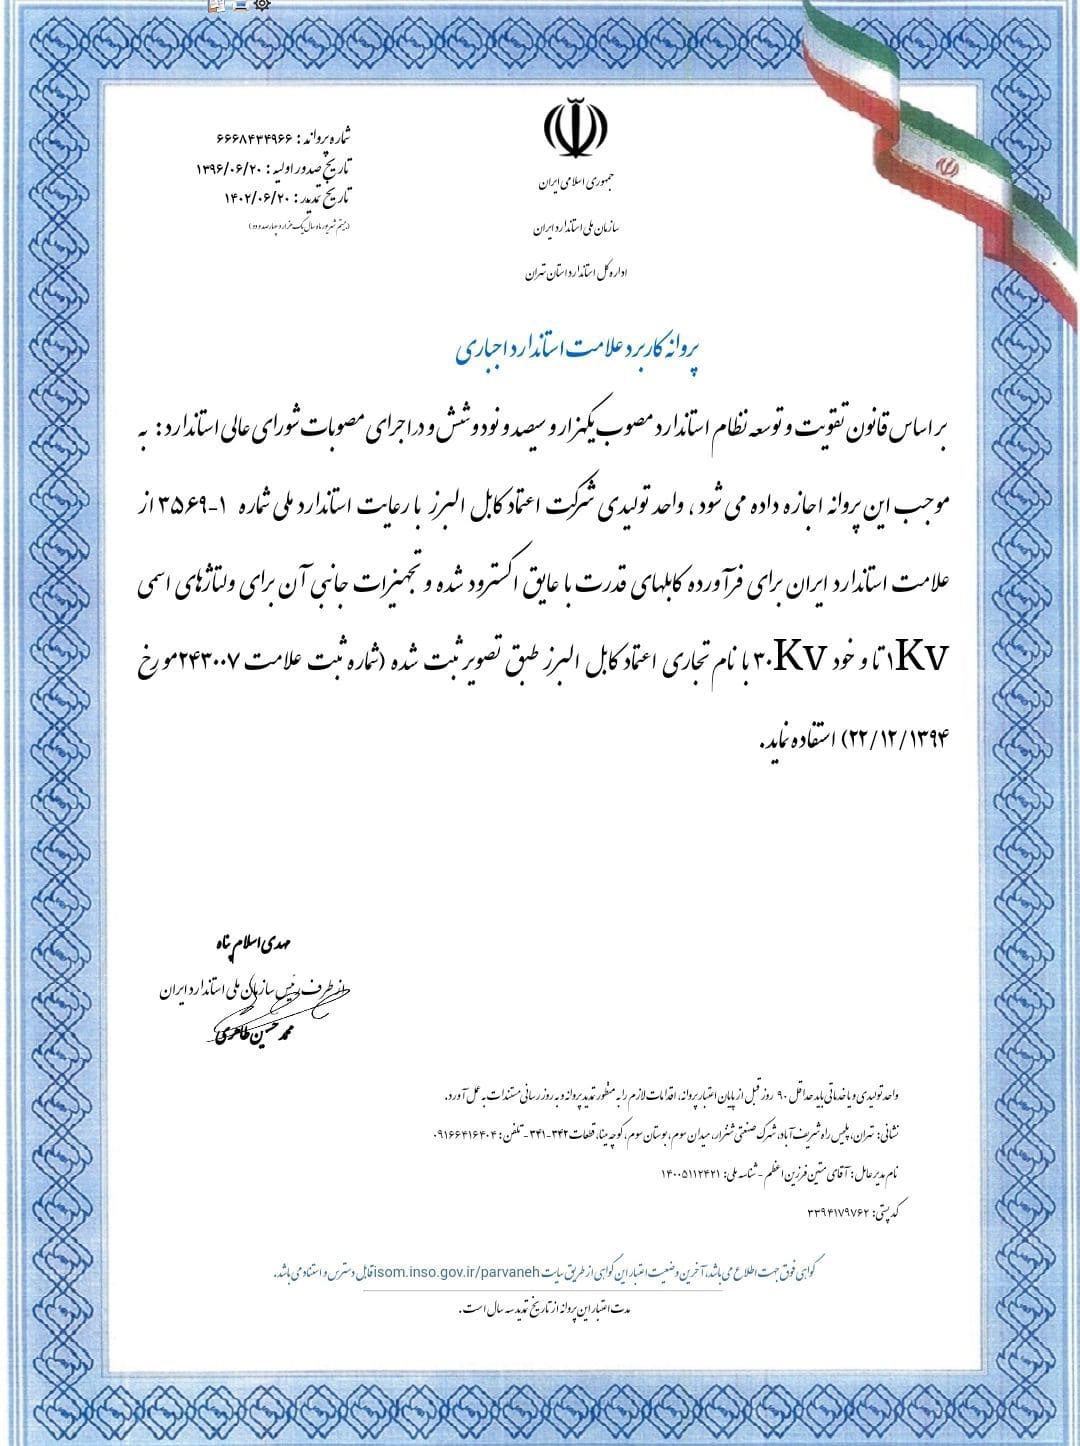 شماره پروانه : ۶۶۶۸۴۳۴۹۶۶
تاریخ صدور اولیه : ۱۳۹۶/۰۶/۲۰
تاریخ تمدید : ۱۴۰۲/۰۶/۲۰
(بیستم شهریور ماه سال یک هزار و چهارصد و دو)
جمهوری اسلامی ایران
سازمان ملی استاندارد ایران
اداره کل استاندارد استان تهران
پروانه کاربرد علامت استاندارد اجباری
بر اساس قانون تقویت و توسعه نظام استاندارد مصوب یکهزار و سیصد و نود و شش و در اجرای مصوبات شورای عالی استاندارد : به
موجب این پروانه اجازه داده می شود ، واحد تولیدی شرکت اعتماد کابل البرز با رعایت استاندارد ملی شماره ۱-۳۵۶۹ از
علامت استاندارد ایران برای فرآورده کابلهای قدرت با عایق اکسترود شده و تجهیزات جانبی آن برای ولتاژهای اسمی
۱Kv تا و خود ۳۰Kv با نام تجاری اعتماد کابل البرز طبق تصویر ثبت شده (شماره ثبت علامت ۲۴۳۰۰۷مورخ
۲۲/۱۲/۱۳۹۴) استفاده نماید.
مهدی اسلام پناه
از طرف رئیس سازمان ملی استاندارد ایران
محمد حسین طاهری
واحد تولیدی و یا خدماتی باید حداقل ۹۰ روز قبل از پایان اعتبار پروانه، اقدامات لازم را به منظور تمدید پروانه و به روز رسانی مستندات به عمل آورد.
نشانی: تهران، پلیس راه شریف آباد، شهرک صنعتی شنزار، میدان سوم، بوستان سوم، کوچه مینا، قطعات ۳۴۲-۳۴۱ - تلفن : ۰۹۱۶۶۴۱۶۴۰۴
نام مدیر عامل : آقای متین فرزین اعظم - شناسه ملی: ۱۴۰۰۵۱۱۲۴۲۱
کد پستی: ۳۳۹۴۱۷۹۷۶۲
گواهی فوق جهت اطلاع می باشد، آخرین وضعیت اعتبار این گواهی از طریق سایت isom.inso.gov.ir/parvaneh قابل دسترس و استناد می باشد.
مدت اعتبار این پروانه از تاریخ تمدید سه سال است.